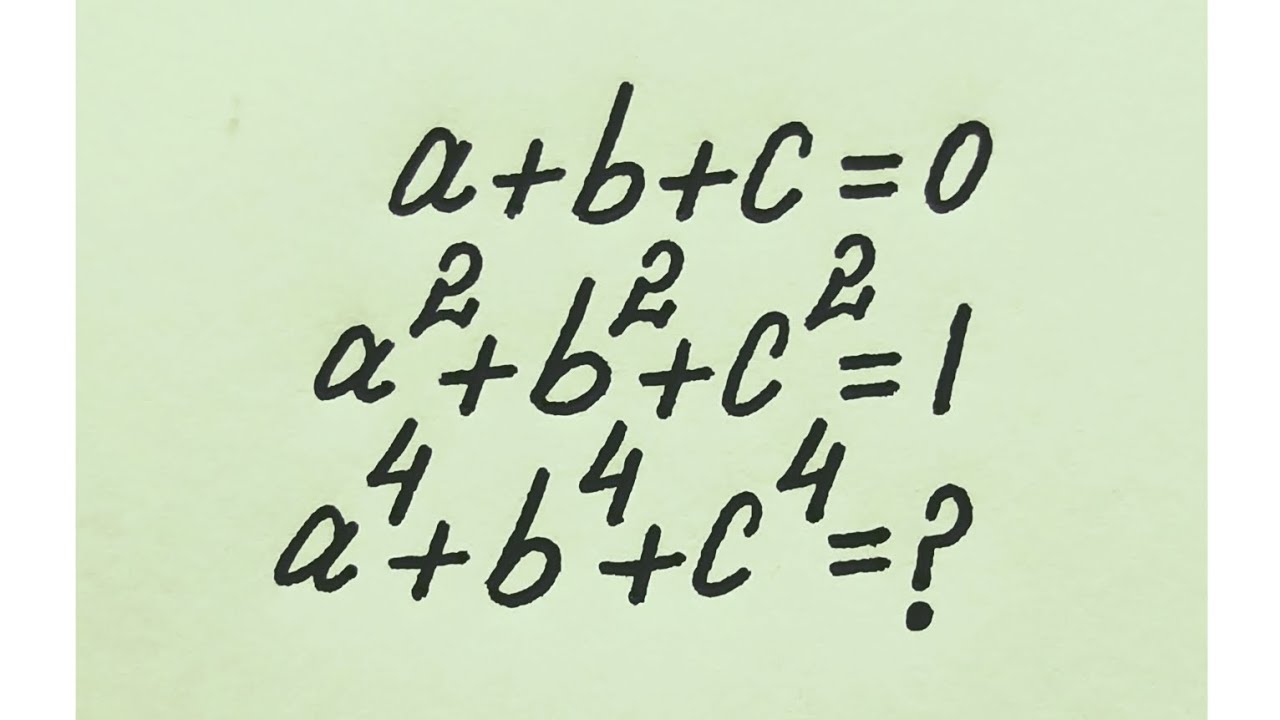 a+b+c=0
a²+b²+c²=1
a⁴+b⁴+c⁴=?